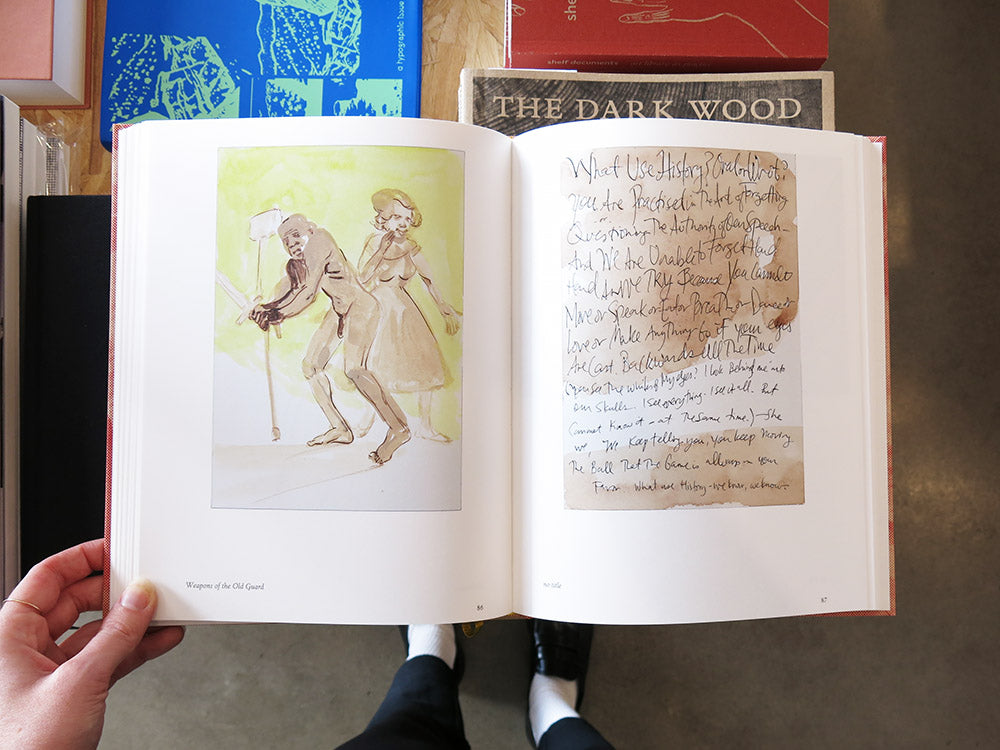 a typographic issue
shelf documents
THE DARK WOOD
What Use History? Oral or Writ?
You Are Practised in The Art of Forgetting
Questioning The Authority of Our Speech -
And We Are Unable to Forget Hard
Hard As We Try Because You Cannot
Move or Speak or Eat or Breathe or Dance or
Love or Make Anything Go if your eyes
Are Cast Backwards All The Time
(You see The whites of My eyes? I look Behind me into
our skulls. I see everything. I see it all. But
Cannot Know it - at The same time.) - She
we, "We Keep telling you, you keep moving
The Ball That The Game is always in your
Favor. What use History - we know, we know -
Weapons of the Old Guard
86
87